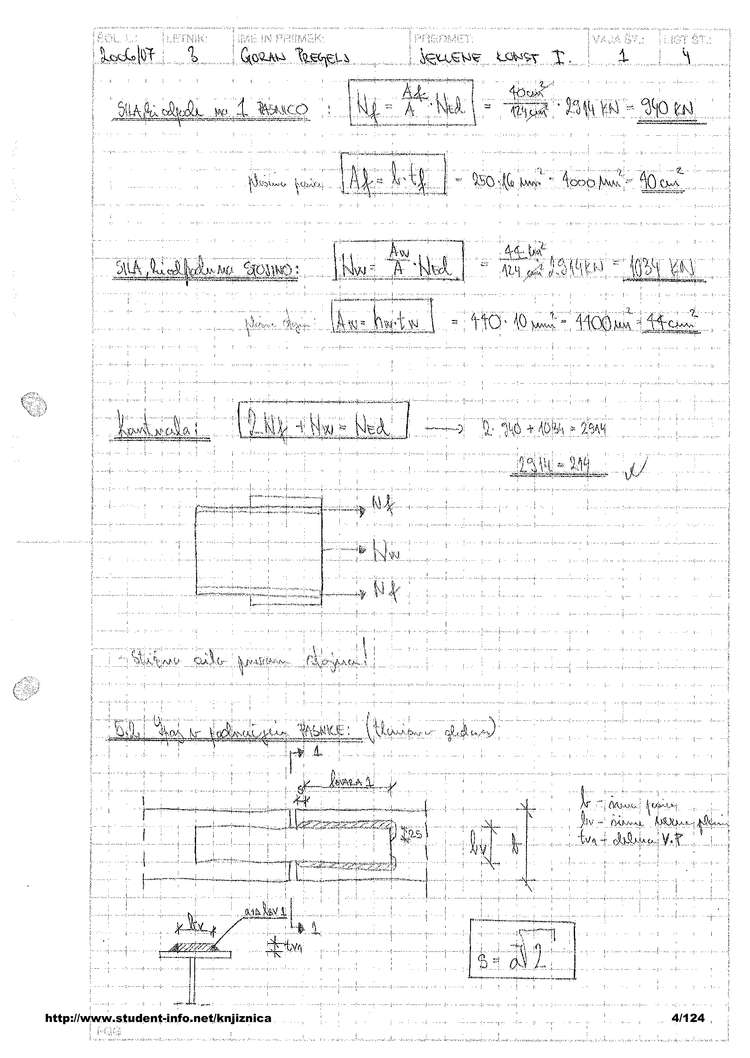 ŠOL. L.: LETNIK: IME IN PRIIMEK: PREDMET: VAJA ŠT.: LIST ŠT.:
2006/07 3 GORAN PREGELJ JEKLENE KONST I. 1 4
SILA, ki odpade na 1 PASNICO : Nf = Af/A · NEd = 40cm²/124cm² · 2914 KN = 940 KN
površina pasnice Af = b·tf = 250·16 mm² = 4000 mm² = 40 cm²
SILA, ki odpade na STOJINO: Nw = Aw/A · NEd = 44 cm²/124 cm² 2914KN = 1034 KN
Aw = hw·tw = 440·10 mm² = 4400 mm² = 44 cm²
Kontrola: 2Nf + Nw = NEd → 2·940 + 1034 = 2914
2914 = 214 ✓
Nf
Nw
Nf
- Strižna sila prevzam stojina!
PASNICE: (tlorisni gledano)
1
s lvara 1
25
bv b
b -
bv -
tv1 - debelina V.P
bv
1
tv1
s = a√2
http://www.student-info.net/knjiznica 4/124
FGG